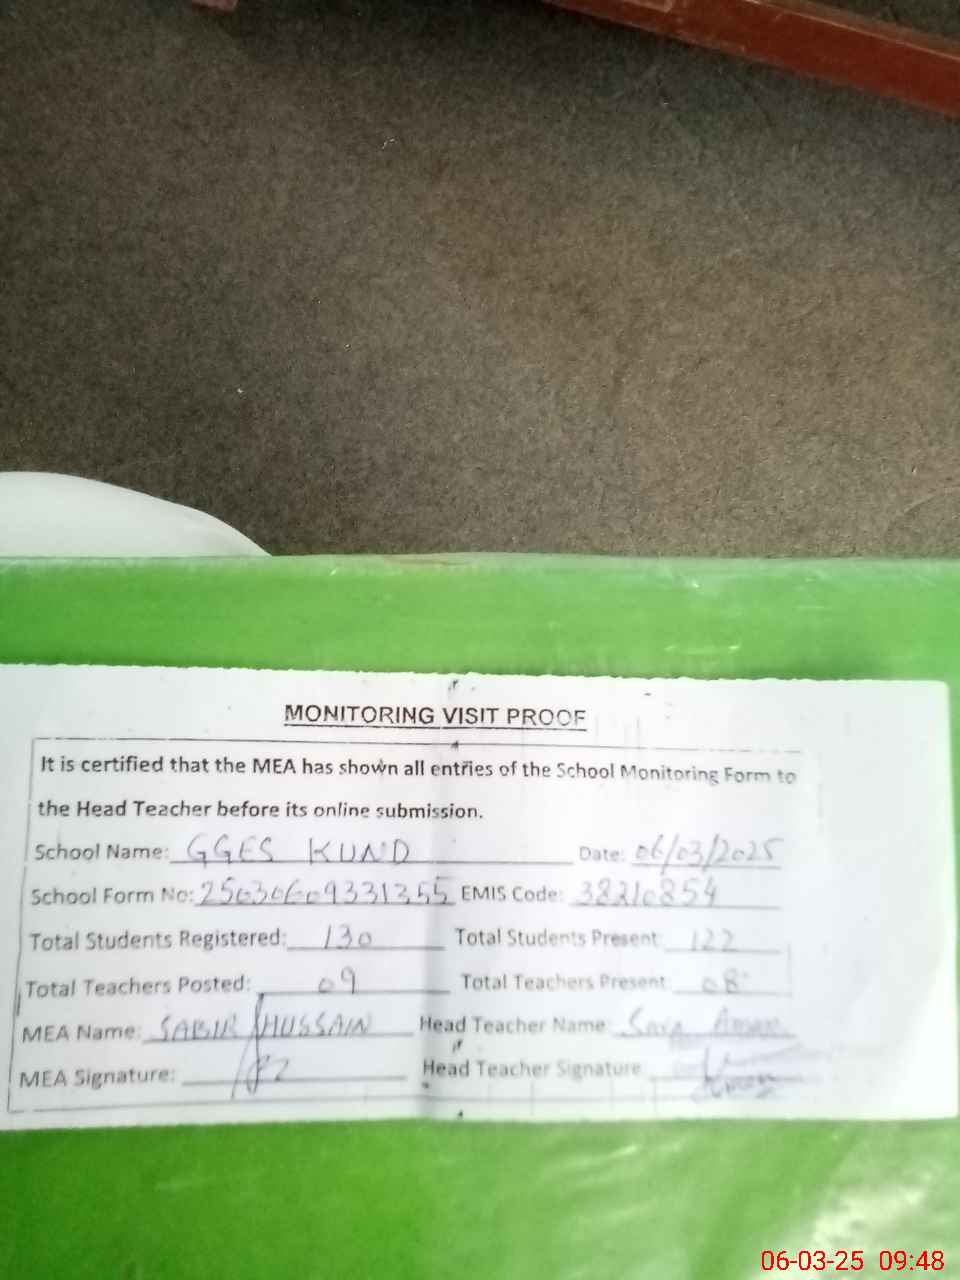 MONITORING VISIT PROOF
It is certified that the MEA has shown all entries of the School Monitoring Form to
the Head Teacher before its online submission.
School Name: GGES KUND Date: 06/03/2025
School Form No: 25030609331355 EMIS Code: 38210854
Total Students Registered: 130 Total Students Present: 122
Total Teachers Posted: 09 Total Teachers Present: 08
MEA Name: SABIR HUSSAIN Head Teacher Name:
MEA Signature: Head Teacher Signature
06-03-25 09:48